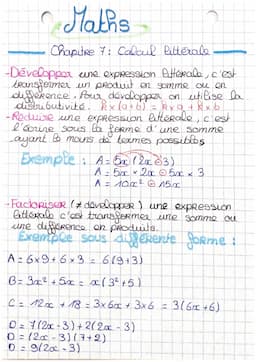 Maths
Chapitre 7: Calcul littérale
-Développer une expression littérale, c'est
transformer un produit en somme ou en
différence. Pour développer on utilise la
distributivité. k×(a+b) = k×a + k×b
-Réduire une expression littérale, c'est
l'écrire sous la forme d'une somme
ayant le moins de termes possibles
Exemple : A = 5x(2x+3)
A = 5x × 2x + 5x × 3
A = 10x² + 15x
-Factoriser (≠ développer) une expression
littérale c'est transformer une somme ou
une différence en produits.
Exemple sous différente forme :
A = 6×9 + 6×3 = 6(9+3)
B = 3x² + 5x = x(3²+5)
C = 12x + 18 = 3×6x + 3×6 = 3(6x+6)
D = 7(2x-3) + 2(2x-3)
D = (2x-3)(7+2)
D = 9(2x-3)